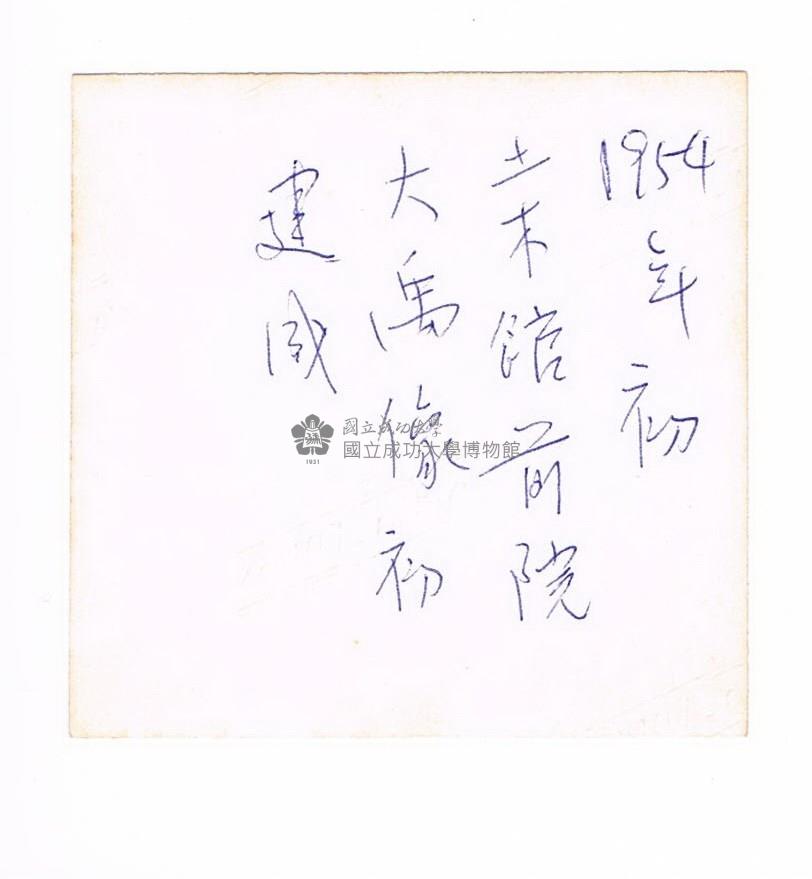 1954年初
土木館前院
大禹像初
建成
國立成功大學
國立成功大學博物館
1931